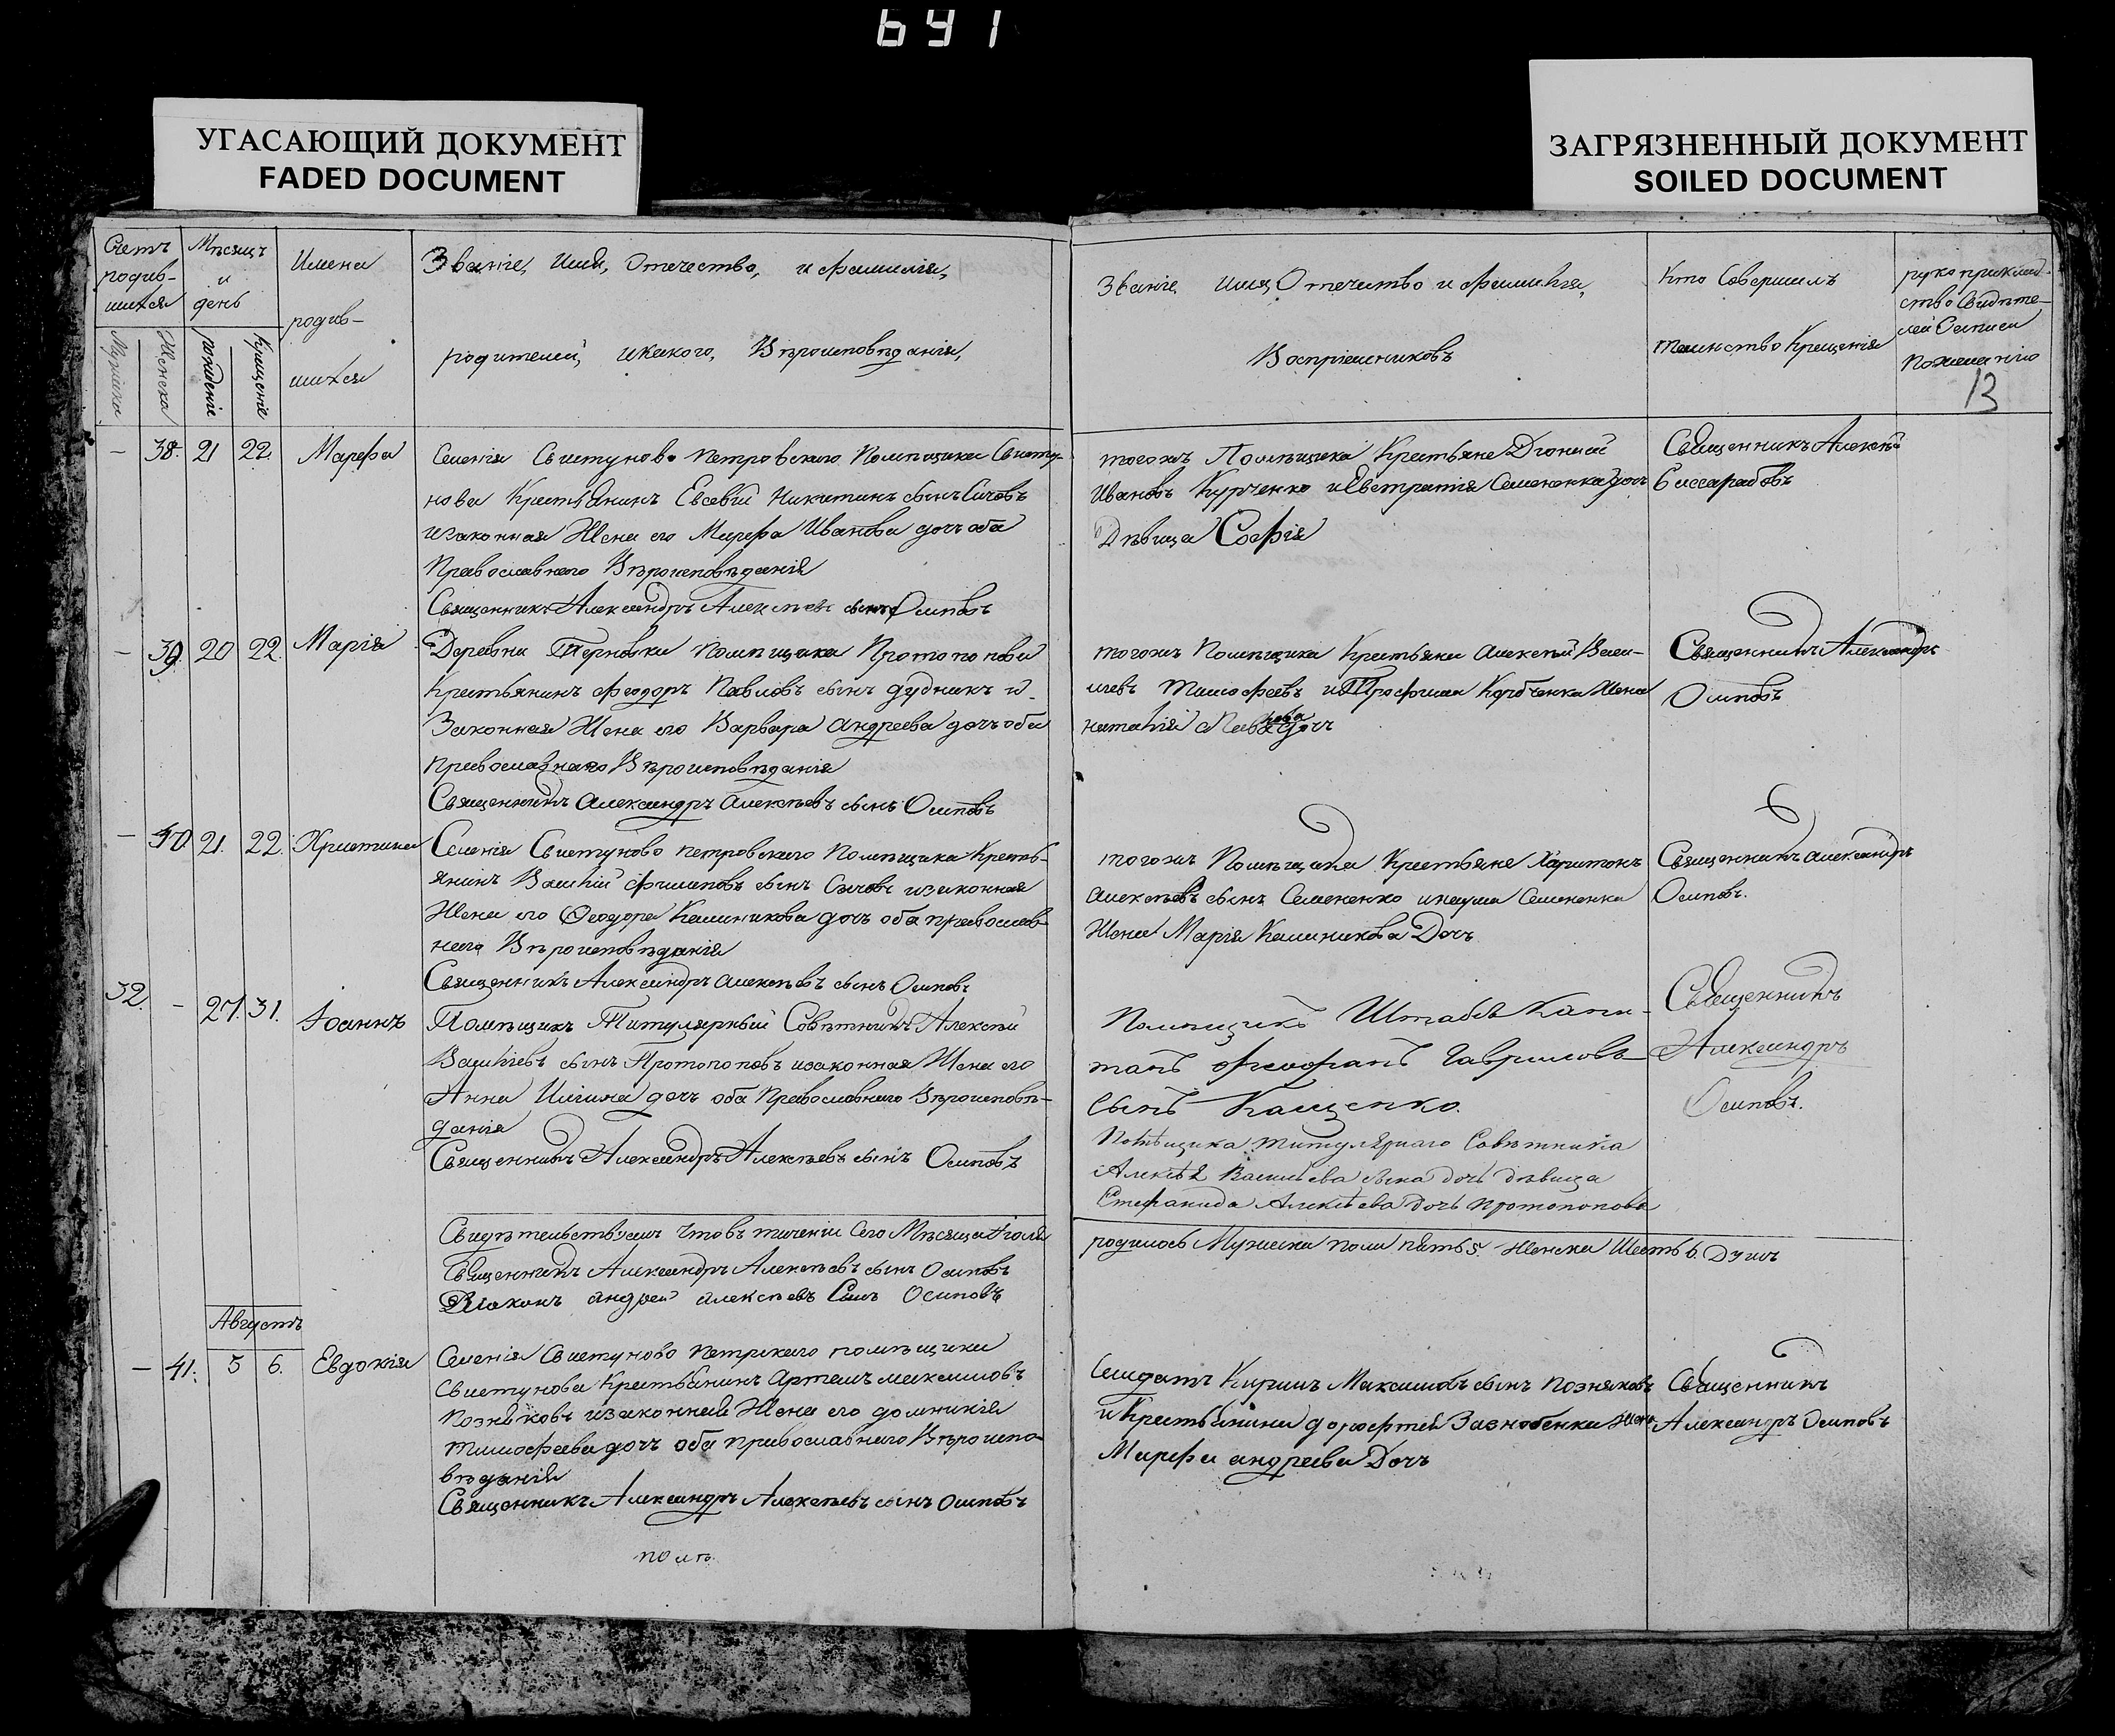 691
УГАСАЮЩИЙ ДОКУМЕНТ
FADED DOCUMENT
ЗАГРЯЗНЕННЫЙ ДОКУМЕНТ
SOILED DOCUMENT
Счетъ родив-шихся
Мужска
Женска
Мѣсяцъ и день
рожденіе
Крещеніе
Имена родив-шихся
Званіе, Имя, Отечество, и фамилія,
родителей, икакого, Вѣроисповѣданія,
Званіе имя Отечество и фамилія,
Воспріемниковъ
Кто Совершилъ
таинство Крещенія
рукоприклад-
ство Свидѣте-
лей Записи
Пожеланію
13
— 38. 21 22. Марфа
Селенія Свистуново Петровскаго Помѣщика Свисту-
нова Крестьянинъ Евсевій Никитинъ сынъ Сичовъ
изаконная Жена его Марфа Иванова дочь оба
Православнаго Вѣроисповѣданія
Священникъ Александръ Алексѣевъ сынъ Осиповъ
тогожъ Помѣщика Крестьяне Діонисій
Ивановъ Курченко иЕвстратія Семененка дочь
Дѣвица Софія
Священникъ Алексѣй
Биссарабовъ
— 39. 20 22. Марія
Деревни Терновки Помѣщика Протопопова
Крестьянинъ Феодоръ Павловъ сынъ дудникъ и
Законная Жена его Варвара андреева дочь оба
православнаго Вѣроисповѣданія
Священникъ Александръ Алексѣевъ сынъ Осиповъ
тогожъ Помѣщика Крестьяне Алексѣй Васи-
лиевъ Тимофеевъ иТрофима Коробченка Жена
наталія Павлова дочь
Священникъ Александръ
Осиповъ
— 40 21. 22. Христина
Селенія Свистуново петровскаго Помѣщика Кресть-
янинъ Василій филиповъ сынъ Сичовъ изаконная
Жена его Феодора Калиникова дочь оба православ-
наго Вѣроисповѣданія
Священникъ Александръ алексѣевъ сынъ Осиповъ
тогожъ Помѣщика Крестьяне Харитонъ
алексѣевъ сынъ Семененко инаума Семененка
Жена Марія Калиникова Дочь
Священникъ Александръ
Осиповъ.
32. — 27. 31. Іоаннъ
Помѣщикъ Титулярный Совѣтникъ Алексѣй
Василіевъ сынъ Протопоповъ изаконная Жена его
Анна Илiина дочь оба Православнаго Вѣроисповѣ-
данія
Священникъ Александръ Алексѣевъ сынъ Осиповъ
Помѣщикъ Штабсъ Капи-
танъ Феофанъ Гавриловъ
сынъ Кащенко.
Помѣщика титулярнаго Совѣтника
Алексѣя Васильева сына дочь дѣвица
Стефанида Алексѣева дочь Протопопова
Священникъ
Александръ
Осиповъ.
Свидѣтельствуемъ чтовъ течении Сего Мѣсяца Іюля
родилось Мужеска пола пять 5. Женска Шесть 6 Душъ
Священникъ Александръ Алексѣевъ сынъ Осиповъ
Діаконъ андрей алексѣевъ Сынъ Осиповъ
Августъ
— 41. 5 6. Евдокія
Селенія Свистуново Петрскаго помѣщика
Свистунова Крестьянинъ Артемъ максимовъ
Позняковъ изаконная Жена его домникія
тимофеева дочь оба православнаго Вѣроиспо-
вѣданія
Священникъ Александръ Алексѣевъ сынъ Осиповъ
Солдатъ Кирилъ Максимовъ сынъ Позняковъ
и Крестьянина дорофтей Зазнобенка жена
Марфа андреева Дочь
Священникъ
Александръ Осиповъ